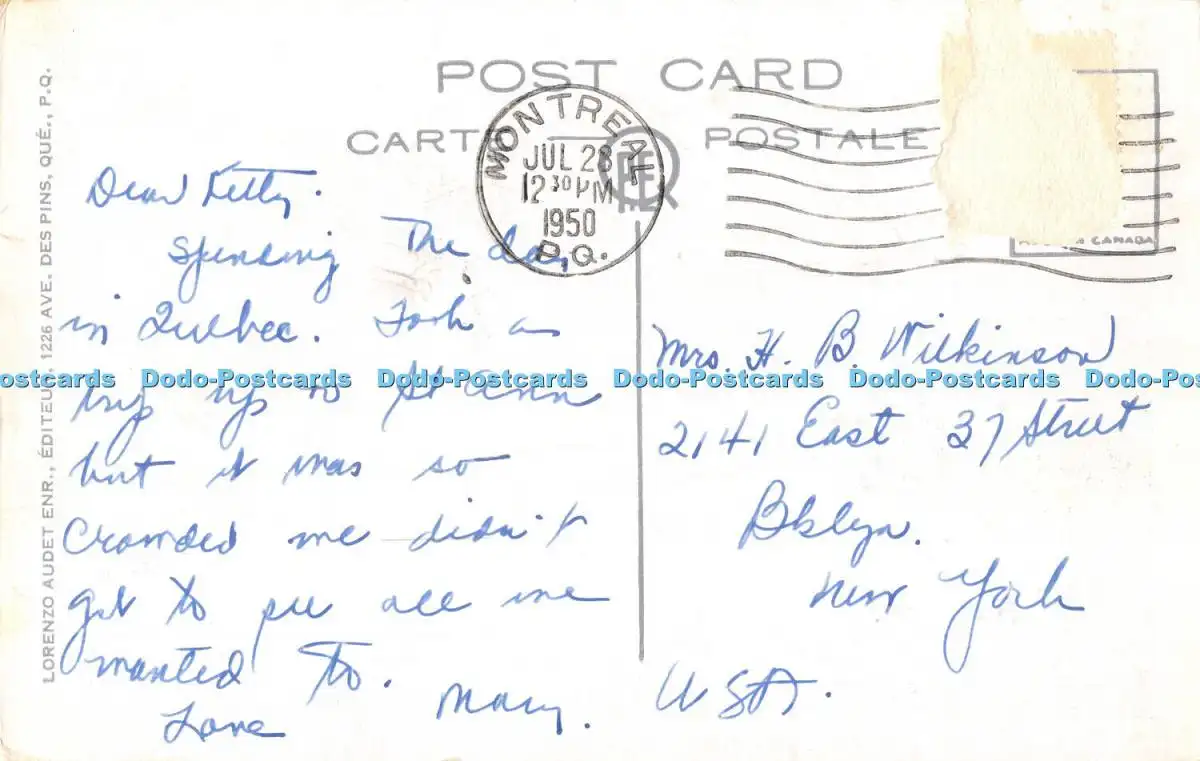 POST CARD
CARTE POSTALE
MONTREAL
JUL 28
12 30 PM
1950
P.Q.
CANADA
LORENZO AUDET ENR., ÉDITEUR, 1226 AVE. DES PINS, QUÉ., P.Q.
Dear Kitty.
Spending The day
in Quebec. Took a
trip up to St Ann
but it was so
Crowded we didn't
get to see all we
wanted to.
Love Mary.
Mrs. H. B. Wilkinson
2141 East 37 Street
Bklyn.
New York
USA.
Dodo-Postcards Dodo-Postcards Dodo-Postcards Dodo-Postcards